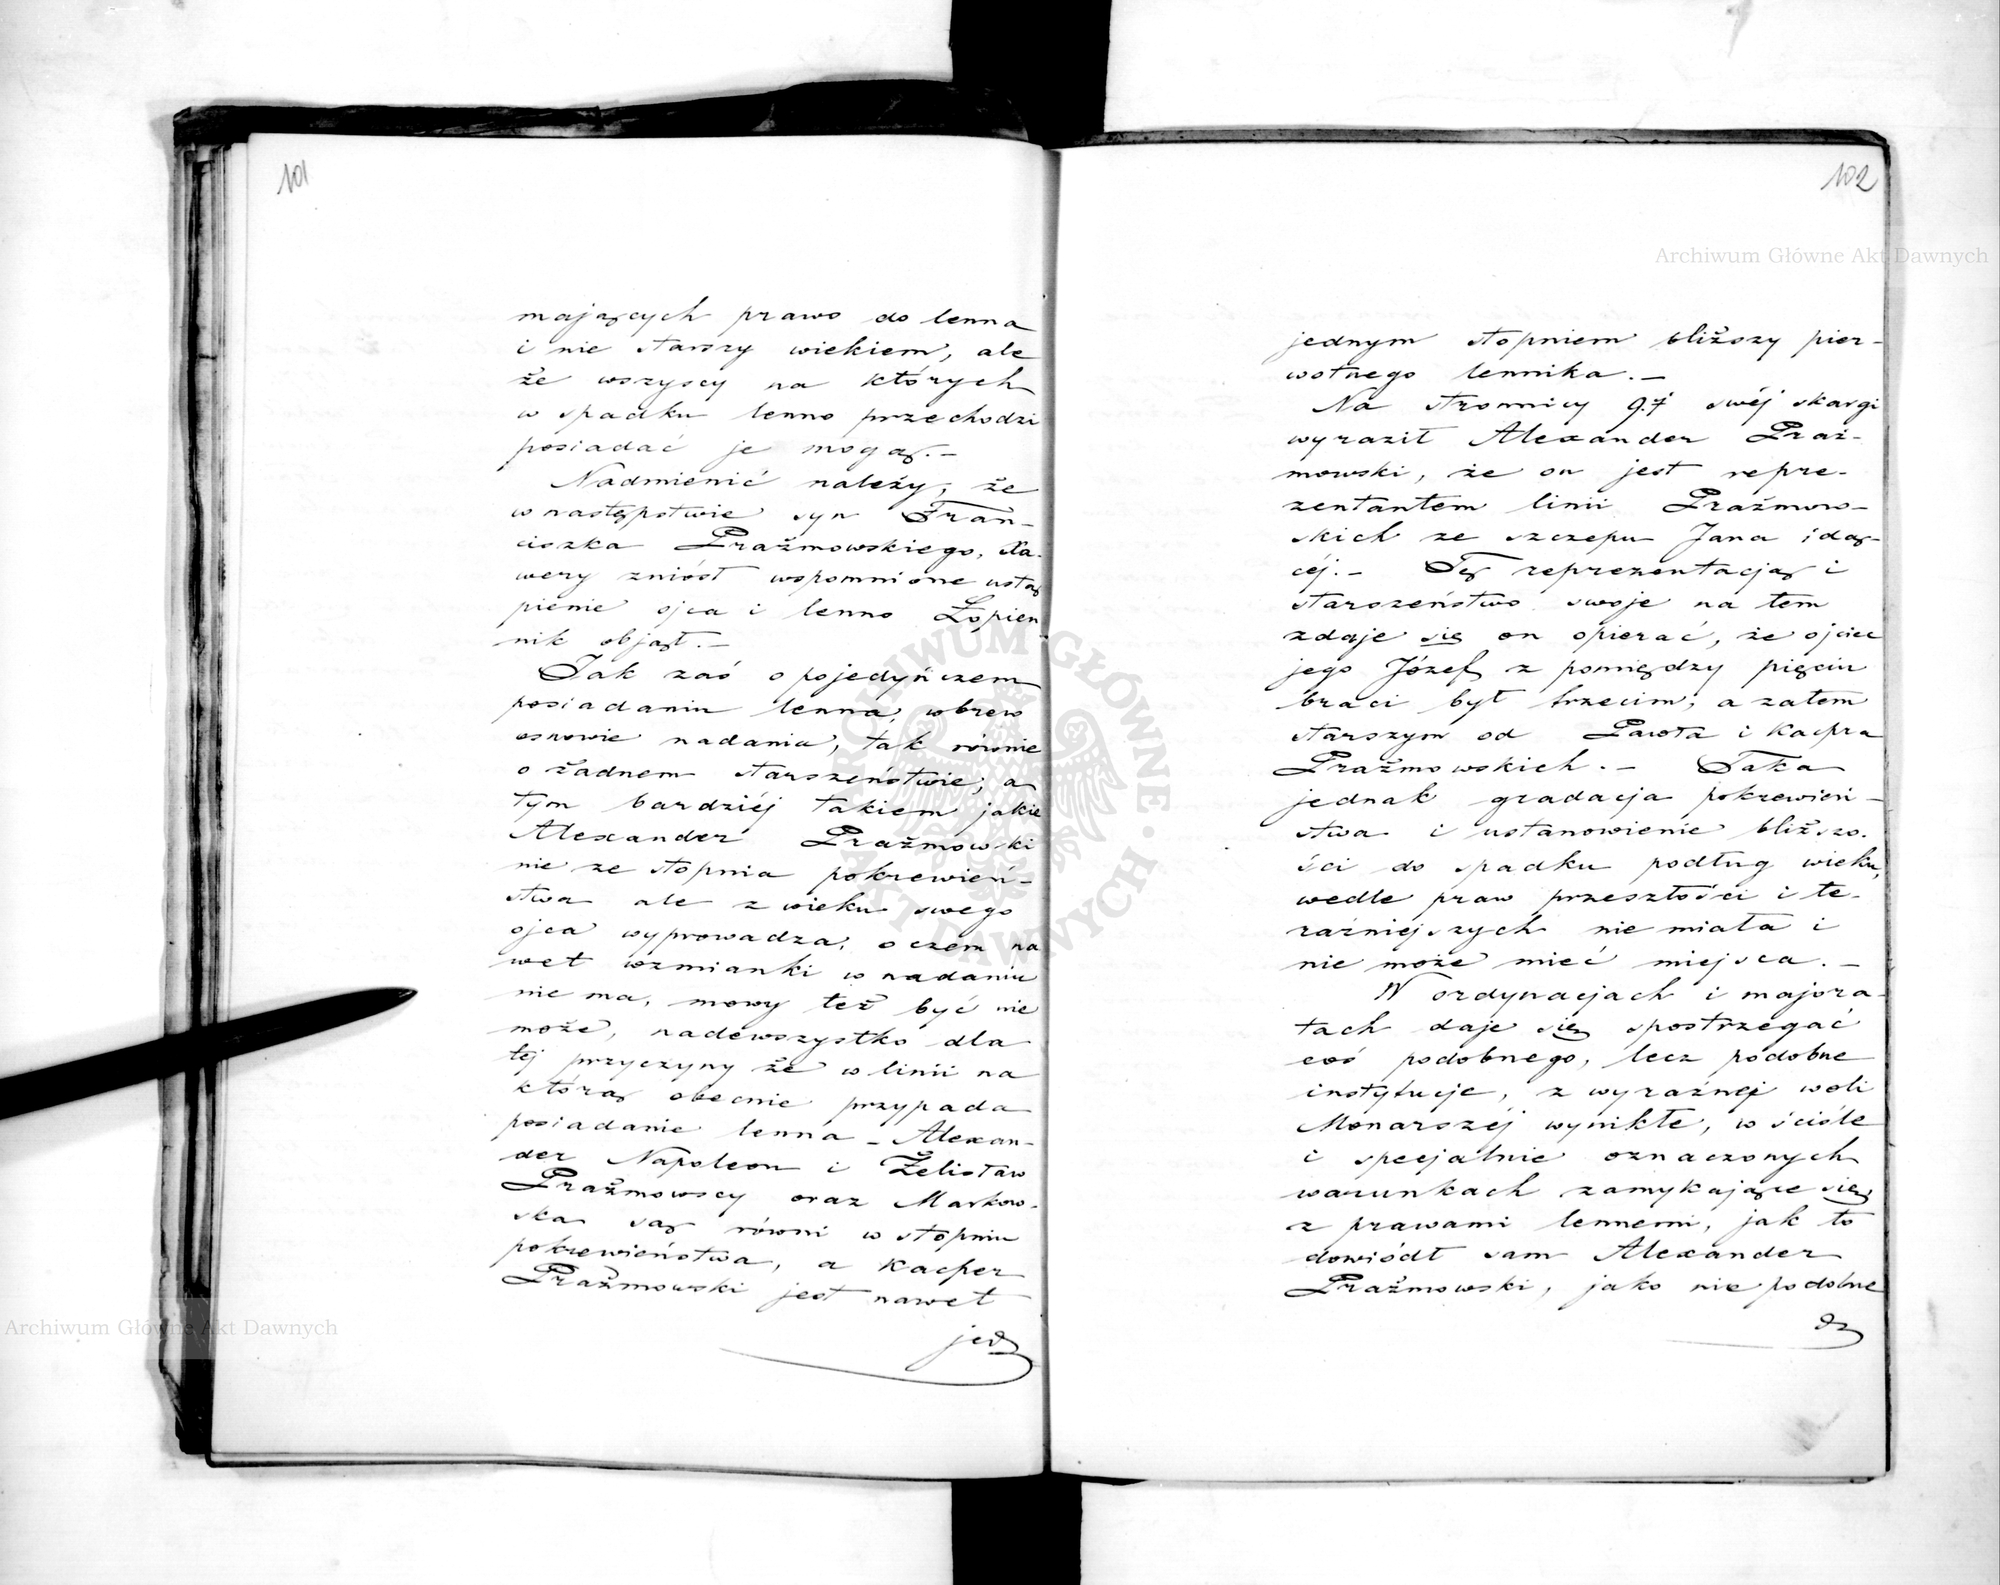 101
mających prawo do lenna
i nie starszy wiekiem, ale
że wszyscy na których
w spadku lenno przechodzi
posiadać je mogą. –
Nadmienić należy, że
w następstwie syn Fran-
ciszka Prażmowskiego, Xa-
wery zniósł wspomnione ustą
pienie ojca i lenno Łopien
nik objął. –
Jak zaś o pojedyńczem
posiadaniu lenna, wbrew
osnowie nadania, tak równie
o żadnem starszeństwie, a
tym bardziéj takiem jakie
Alexander Prażmowski
nie ze stopnia pokrewień-
stwa ale z wieku swego
ojca wyprowadza, o czem na
wet wzmianki w nadaniu
nie ma, mowy też być nie
może, nadewszystko dla
téj przyczyny że w linii na
którą obecnie przypada
posiadanie lenna – Alexan-
der Napoleon i Żelisław
Prażmowscy oraz Markow-
ska są równi w stopniu
pokrewieństwa, a Kacper
Prażmowski jest nawet
jed
102
jednym stopniem bliższy pier-
wotnego lennika. –
Na stronnicy 9.7 swéj skargi
wyraził Alexander Praż-
mowski, że on jest repre-
zentantem linii Prażmow-
skich ze szczepu Jana idą-
céj. – Tę reprezentacją i
starszeństwo swoje na tem
zdaje się on opierać, że ojciec
jego Józef z pomiędzy pięciu
braci był trzecim, a zatem
starszym od Pawła i Kacpra
Prażmowskich. – Taka
jednak gradacja pokrewień-
stwa i ustanowienie bliższo-
ści do spadku podług wieku,
wedle praw przeszłości i te-
raźniejszych nie miała i
nie może mieć miejsca. –
W ordynacjach i majora-
tach daje się spostrzegać
coś podobnego, lecz podobne
instytucje, z wyraźnej woli
Monarszéj wynikłe, w ściśle
i specjalnie oznaczonych
warunkach zamykające się,
z prawami lennemi, jak to
dowiódł sam Alexander
Prażmowski, jako nie podobne
Archiwum Główne Akt Dawnych
Archiwum Główne Akt Dawnych
ARCHIWUM GŁÓWNE AKT DAWNYCH